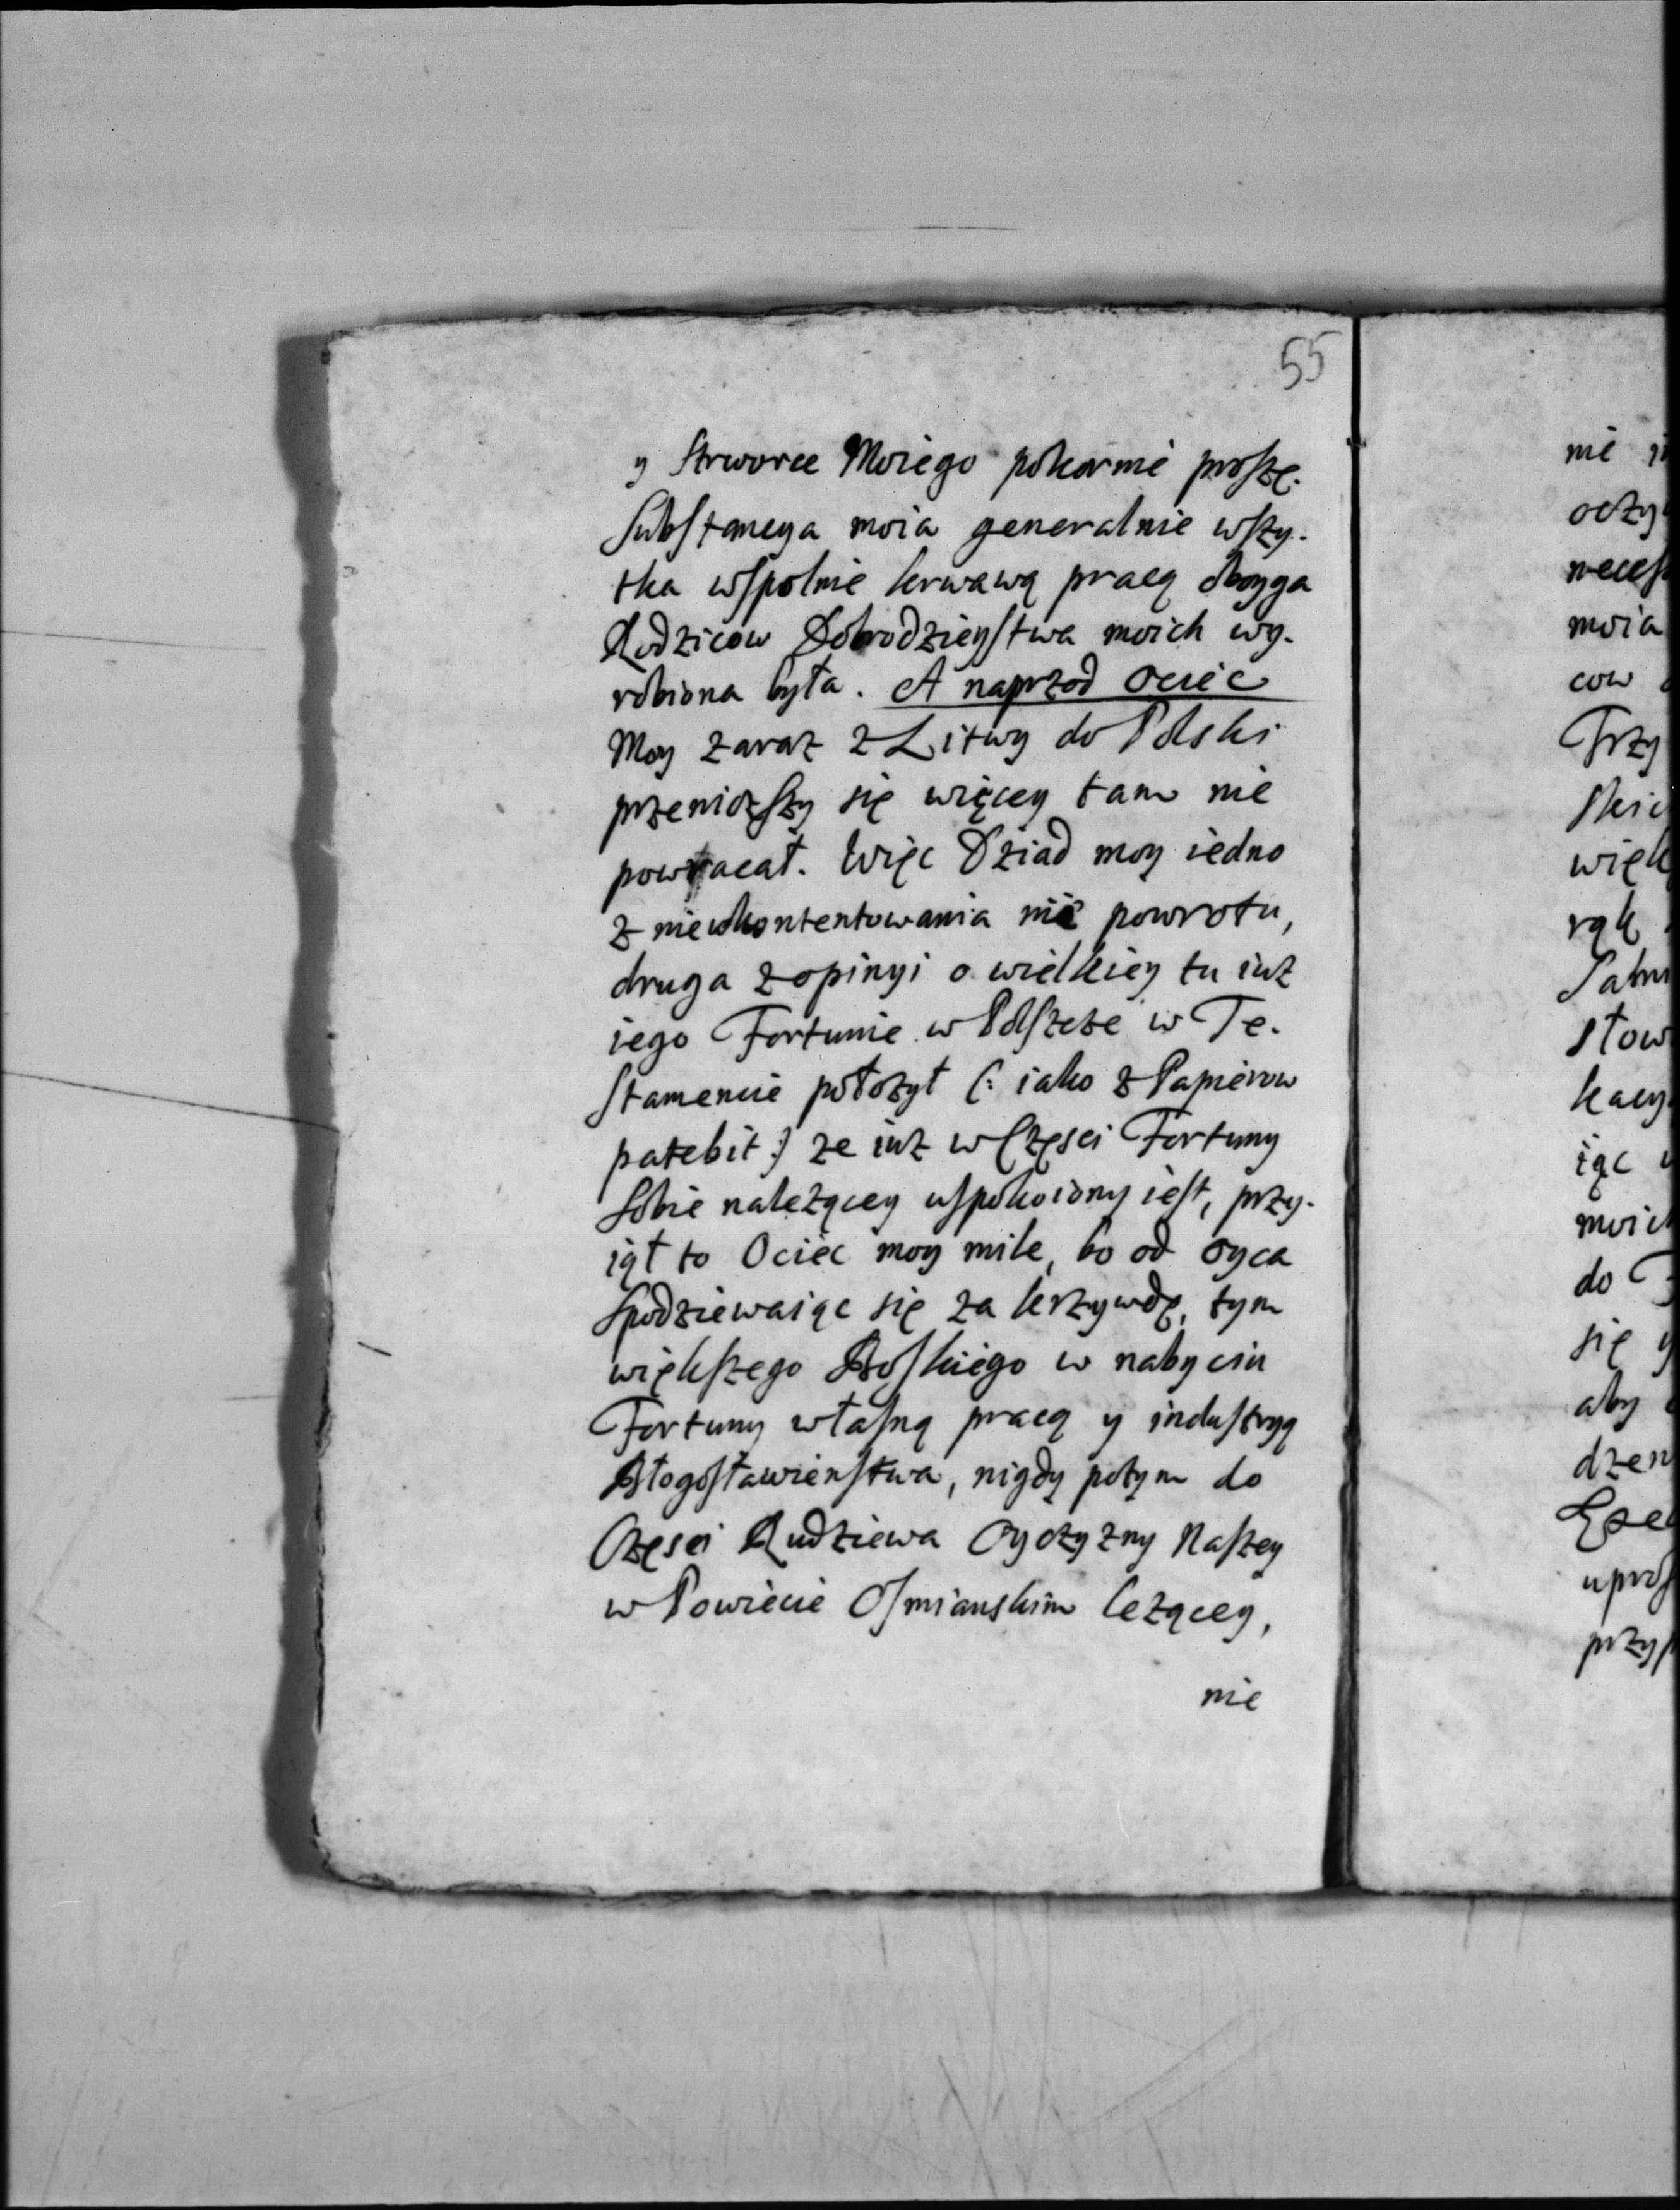 55
y Stworce Moiego pokornie proszę.
Substancya moia generalnie wszy-
tka wspolnie krwawą pracą oboyga
Rodzicow Dobrodzieystwa moich wy-
robiona była. A naprzod Ociec
Moy zaraz z Litwy do Polski
przeniozszy się więcey tam nie
powracał. Więc Dziad moy iedno
z nieukontentowania nie powrotu,
druga z opinyi o wielkiey tu iuz
iego Fortunie w Polszcze w Te-
stamencie położył (: iako z Papierow
patebit :) ze iuz w Częsci Fortuny
Sobie należącey uspokoiony iest, przy-
iął to Ociec moy mile, bo od Oyca
Spodziewaiąc się za krzywdę, tym
większego Boskiego w nabyciu
Fortuny własną pracą y industryą
Błogosławienstwa, nigdy potym do
Częsci Rudziewa Oyczyzny Naszey
w Powiecie Osmianskim leżącey,
nie
nie
moia
cow
Trzy
rąk
iąc
do
się
aby